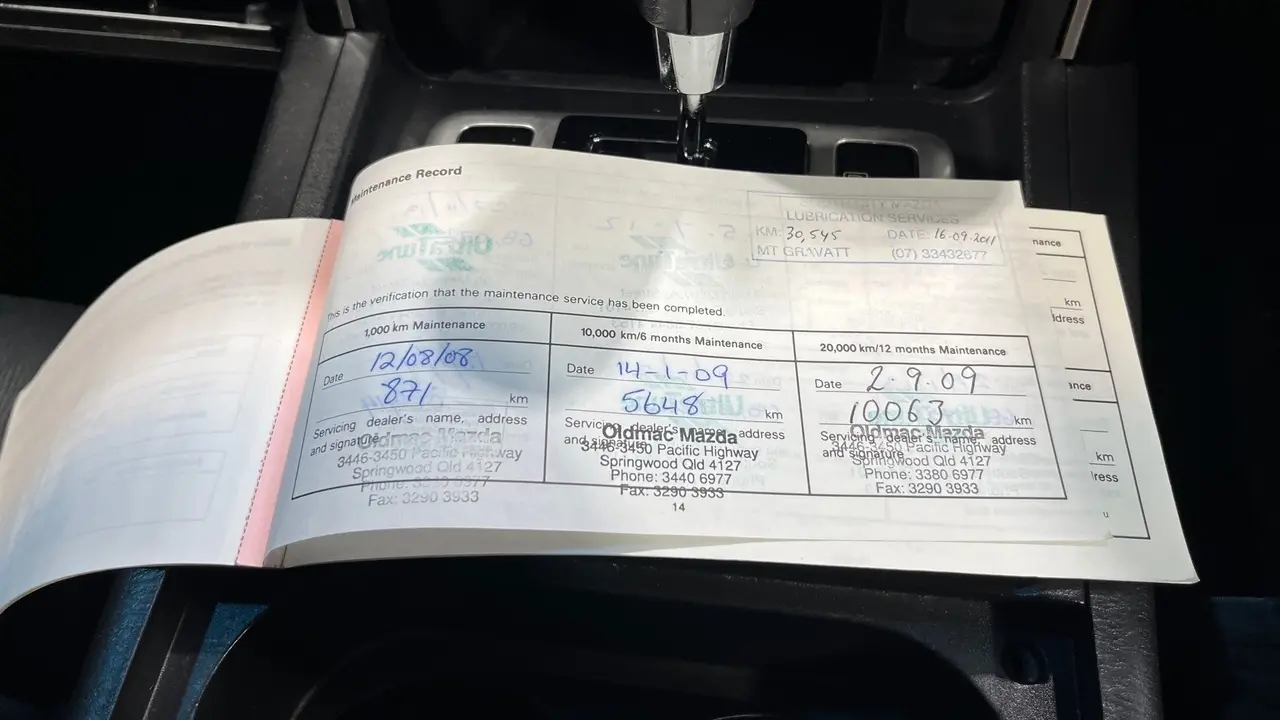 Maintenance Record
LUBRICATION SERVICES
KM: 30,545 DATE: 16-09-2011
MT GRAVATT (07) 33432677
This is the verification that the maintenance service has been completed.
1,000 km Maintenance
12/08/08
Date
871 km
Servicing dealer's name, address
and signature
Oldmac Mazda
3446-3450 Pacific Highway
Springwood Qld 4127
Phone:
Fax: 3290 3933
10,000 km/6 months Maintenance
Date 14-1-09
5648 km
Servicing dealer's name, address
and signature
Oldmac Mazda
3446-3450 Pacific Highway
Springwood Qld 4127
Phone: 3440 6977
Fax: 3290 3933
20,000 km/12 months Maintenance
Date 2.9.09
10063 km
Servicing dealer's name, address
and signature
Oldmac Mazda
3446-3450 Pacific Highway
Springwood Qld 4127
Phone: 3380 6977
Fax: 3290 3933
14
nance
km
ldress
ance
km
ress